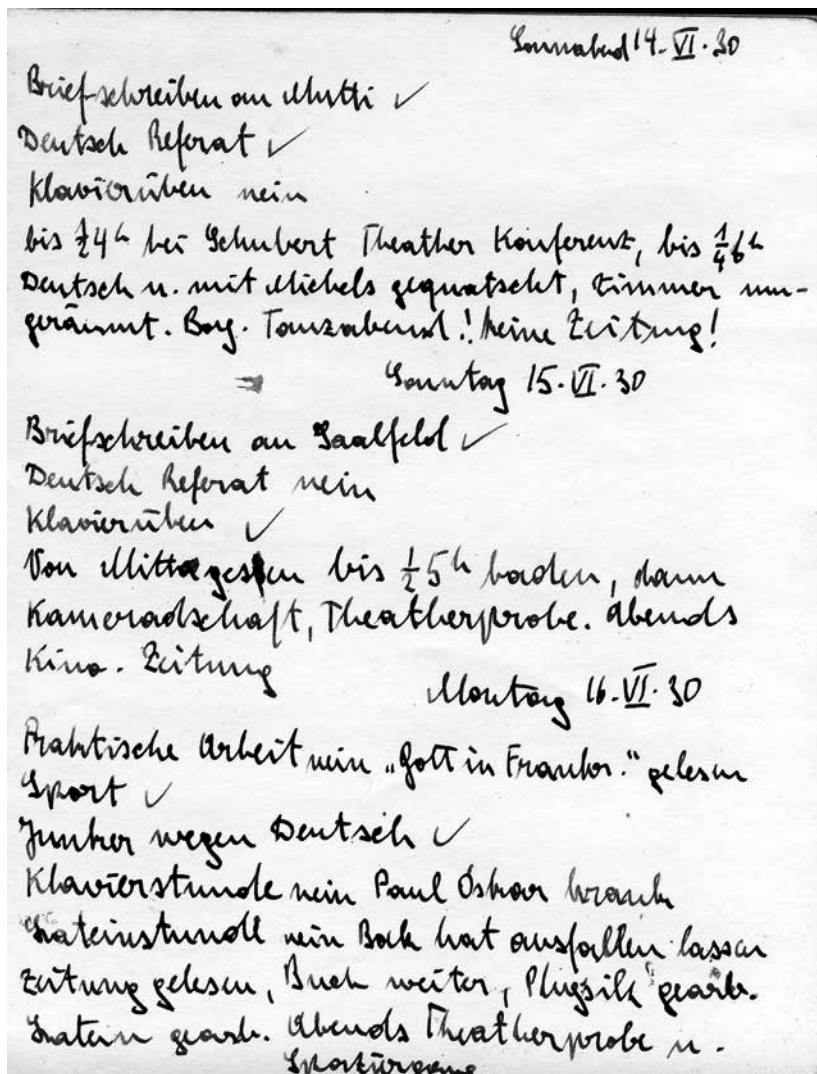 Sonnabend 14. VI. 30
Briefschreiben an Mutti ✓
Deutsch Referat ✓
Klavierüben nein
bis ½4h bei Schubert Theather Konferenz, bis ¼6h
Deutsch u. mit Michels gequatscht, Zimmer um-
geräumt. Tanzabend! keine Zeitung!
Sonntag 15. VI. 30
Briefschreiben an Saalfeld ✓
Deutsch Referat nein
Klavierüben ✓
Von Mittagessen bis ½5h baden, dann
Kameradschaft, Theatherprobe. Abends
Kino. Zeitung
Montag 16. VI. 30
Praktische Arbeit nein „Gott in Frankr.“ gelesen
Sport ✓
Junker wegen Deutsch ✓
Klavierstunde nein Paul Oskar krank
Lateinstunde nein Bock hat ausfallen lassen
Zeitung gelesen, Buch weiter, Physik gearb.
Latein gearb. Abends Theatherprobe u.